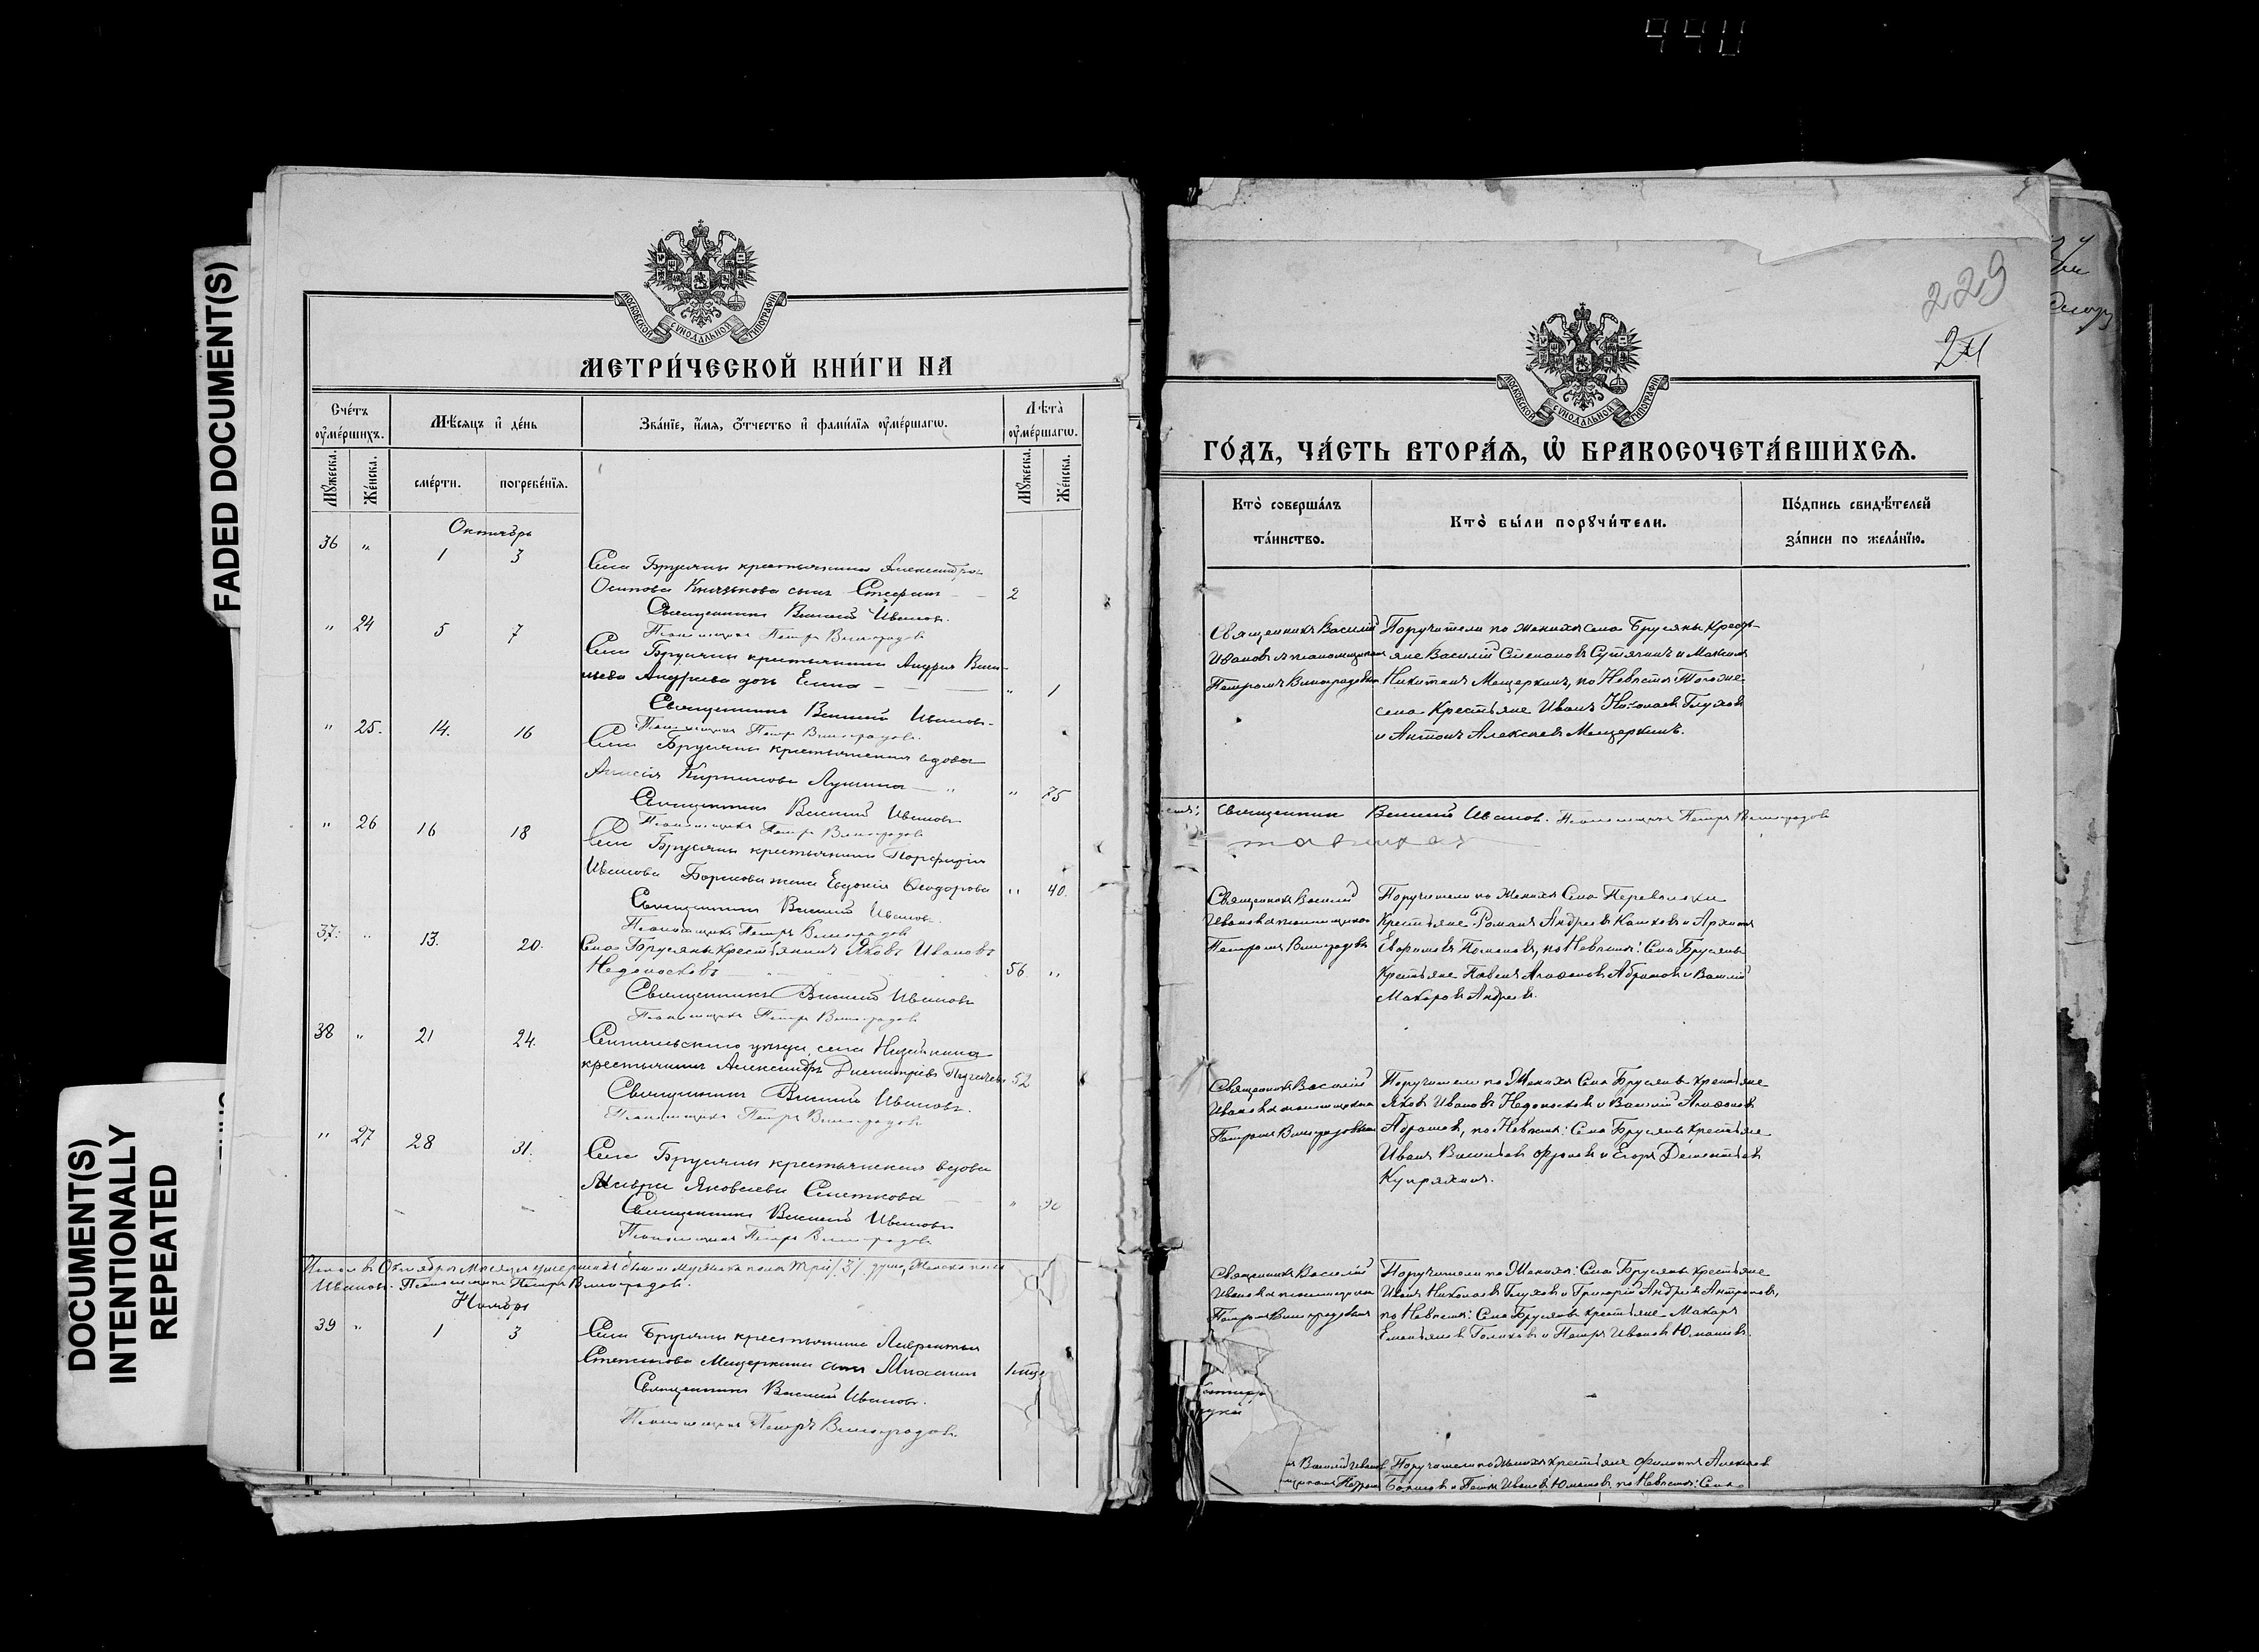 FADED DOCUMENT(S)
DOCUMENT(S)
INTENTIONALLY
REPEATED
МОСКОВСКОЙ СѴНОДАЛЬНОЙ ТИПОГРАФІИ
МЕТРИ́ЧЕСКОЙ КНИ́ГИ НА
Сче́тъ оу҆ме́ршихъ.
Мѣ́сяцъ и҆ де́нь
Зва́нїе, и҆́мя, ѻ҆́тчество и҆ фами́лїя оу҆ме́ршагѡ.
Лѣта̀ оу҆ме́ршагѡ.
Мꙋ́жеска.
Же́нска.
сме́рти.
погребе́нїя.
Мꙋ́жеска.
Же́нска.
Октябрь
36 " 1 3
Села Брусяны крестьянина Александра
Осипова Князькова сынъ Стефанъ 2
Священникъ Василій Ивановъ.
Псаломщикъ Петръ Виноградовъ
" 24 5 7
Села Брусяны крестьянина Андрея Васи-
льева Андреева дочь Елена " 1
Священникъ Василій Ивановъ.
Псаломщикъ Петръ Виноградовъ.
" 25. 14. 16
Села Брусяны крестьянская вдова
Анисія Кириллова Лунина " 75
Священникъ Василій Ивановъ
Псаломщикъ Петръ Виноградовъ
" 26 16 18
Села Брусяны крестьянина Порфирія
Иванова жена Евдокія Ѳеодорова " 40.
Священникъ Василій Ивановъ.
Псаломщикъ Петръ Виноградовъ
37. " 13. 20.
Села Брусяны Крестьянинъ Яковъ Ивановъ
Недоносковъ 56 "
Священникъ Василій Ивановъ
Псаломщикъ Петръ Виноградовъ
38 " 21 24.
уѣзда, села
крестьянинъ Александръ Димитріевъ 52
Священникъ Василій Ивановъ.
Псаломщикъ Петръ Виноградовъ
" 27 28 31.
Села Брусяны крестьянская вдова
Яковлева
Священникъ Василій Ивановъ
Псаломщикъ Петръ Виноградовъ
Итого въ Октябрѣ мѣсяцѣ умершихъ было мужеска пола три /3/ душ, женска пола
Ивановъ. Псаломщикъ Петръ Виноградовъ.
Ноябрь
39 " 1 3
Села Брусяны крестьянина Лаврентія
Степанова Мещеркина сынъ Михаилъ
Священникъ Василій Ивановъ.
Псаломщикъ Петръ Виноградовъ.
229
МОСКОВСКОЙ СѴНОДАЛЬНОЙ ТИПОГРАФІИ
ГО́ДЪ, ЧА́СТЬ ВТОРА́Я, Ѡ҆ БРАКОСОЧЕТА́ВШИХСЯ.
Кто̀ соверша́лъ
та́инство.
Кто̀ бы́ли порꙋчи́тели.
По́дпись свидѣ́телей
за́писи по жела́нїю.
Священникъ Василій
Ивановъ съ псаломщикомъ
Петромъ Виноградовымъ
Поручители по женихѣ села Брусяны Кресть-
яне Василій Степановъ Сутягинъ и Максимъ
Никитинъ Мещеркинъ, по Невѣстѣ: Тогоже
села Крестьяне Иванъ Николаевъ Глуховъ
и Антонъ Алексѣевъ Мещеркинъ.
Священникъ Василій Ивановъ. Псаломщикъ Петръ Виноградовъ
Священникъ Василій
Ивановъ съ псаломщикомъ
Петромъ Виноградовымъ
Поручители по Женихѣ Села Переволоки
Крестьяне Романъ Андреевъ и Архипъ
по Невѣстѣ: Села Брусянъ
Крестьяне Павелъ Агаѳоновъ Абрамовъ и Василій
Макаровъ Андреевъ.
Священникъ Василій
Ивановъ съ псаломщикомъ
Петромъ Виноградовымъ
Поручители по Женихѣ Села Брусянъ крестьяне
Яковъ Ивановъ Недоносковъ и Василій Агаѳоновъ
Абрамовъ, по Невѣстѣ: Села Брусянъ крестьяне
Иванъ Васильевъ Фроловъ и Егоръ Дементьевъ
Купряхинъ.
Священникъ Василій
Ивановъ съ псаломщикомъ
Петромъ Виноградовымъ
Поручители по Женихѣ: Села Брусянъ крестьяне
Иванъ Николаевъ Глуховъ и Григорій Андреевъ Антроповъ,
по Невѣстѣ: Села Брусянъ крестьяне Макаръ
Емельяновъ Голиковъ и Петръ Ивановъ Юмановъ.
Василій Ивановъ
Поручители по Женихѣ крестьяне Филиппъ Алексѣевъ
и Петръ Ивановъ Юмановъ, по Невѣстѣ: Села